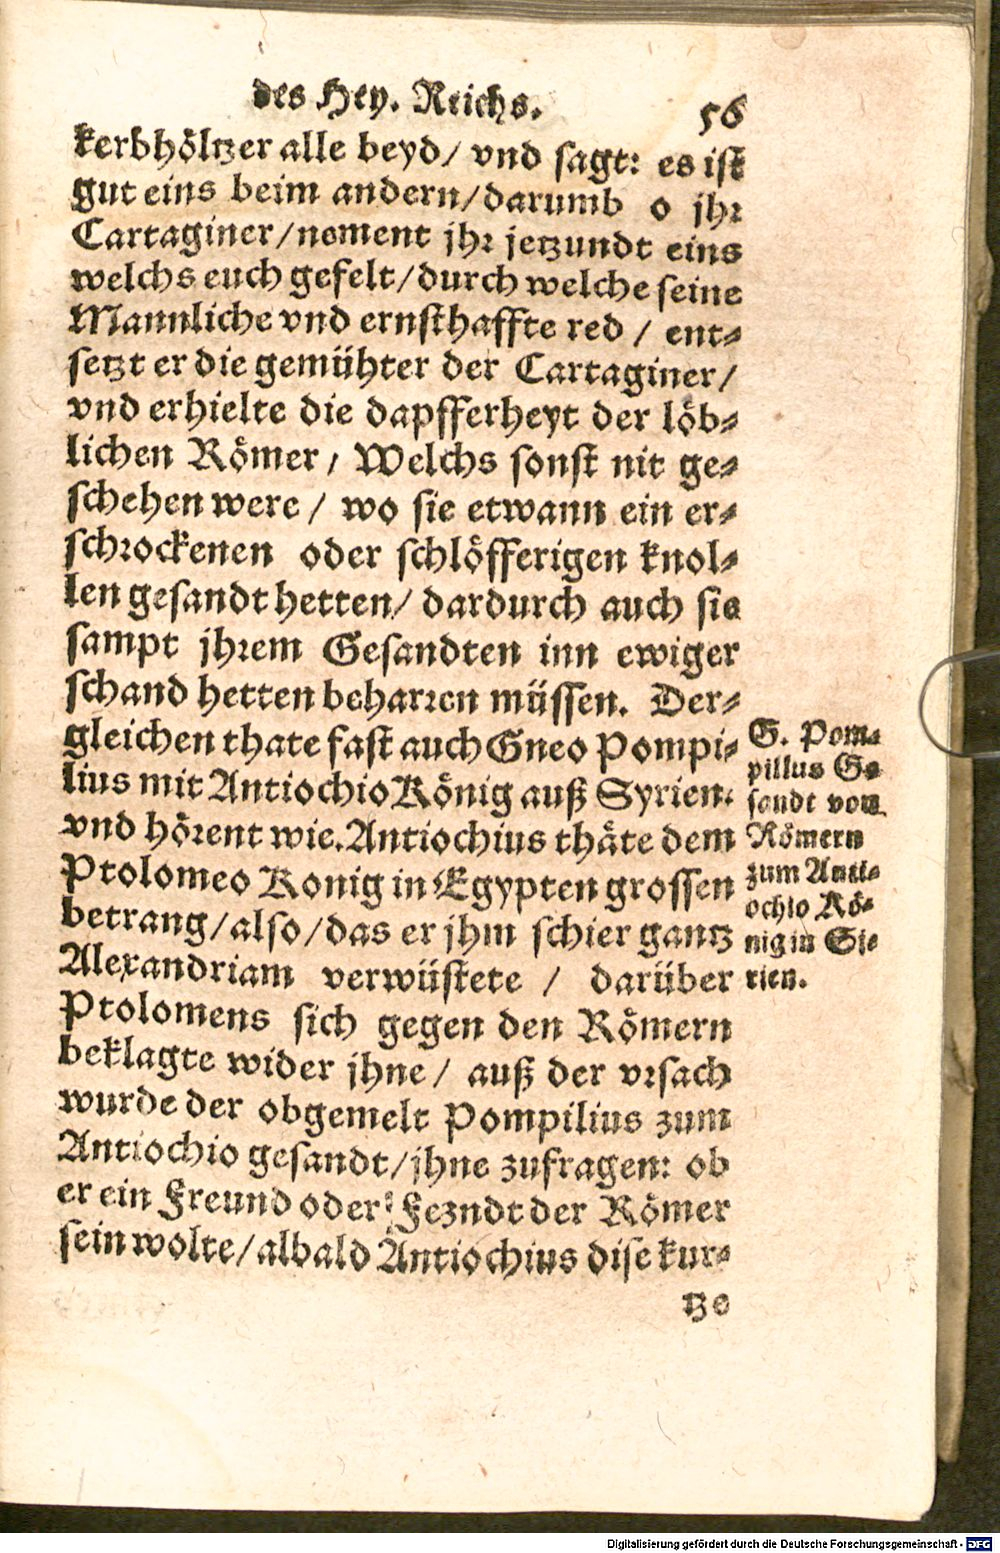 des Hey. Reichs.
56
kerbhöltzer alle beyd/ vnd sagt: es ist
gut eins beim andern/darumb o jhr
Cartaginer/nement jhr jetzundt eins
welchs euch gefelt/durch welche seine
Mannliche vnd ernsthaffte red / ent⸗
setzt er die gemühter der Cartaginer/
vnd erhielte die dapfferheyt der löb⸗
lichen Römer, Welchs sonst nit ge⸗
schehen were / wo sie etwann ein er⸗
schrockenen oder schlöfferigen knol⸗
len gesandt hetten/ dardurch auch sie
sampt jhrem Gesandten inn ewiger
schand hetten beharren müssen. Der⸗
gleichen thate fast auch Gneo Pompi⸗
lius mit Antiochio König auß Syrien.
vnd hörent wie. Antiochius thäte dem
Ptolomeo Konig in Egypten grossen
betrang/also/das er jhm schier gantz
Alexandriam verwüstete / darüber
Ptolomens sich gegen den Römern
beklagte wider jhne/ auß der vrsach
wurde der obgemelt Pompilius zum
Antiochio gesandt/jhne zufragen: ob
er ein Freund oder Fezndt der Römer
sein wolte/albald Antiochius dise kur⸗
tze
G. Pom⸗
pillus Ge
sandt von
Römern
zum Anti⸗
ochio Kö⸗
nig in Si⸗
rien.
Digitalisierung gefördert durch die Deutsche Forschungsgemeinschaft - DFG